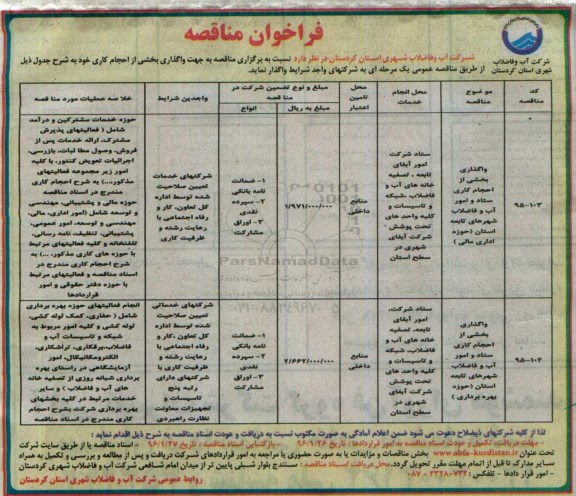 فراخوان مناقصه
شرکت آب و فاضلاب
شهری استان کردستان
شرکت آب وفاضلاب شهری استان کردستان در نظر دارد نسبت به برگزاری مناقصه به جهت واگذاری بخشی از احجام کاری خود به شرح جدول ذیل
از طریق مناقصه عمومی یک مرحله ای به شرکتهای واجد شرایط واگذار نماید.
کد مناقصه
موضوع مناقصه
محل انجام خدمات
محل تامین اعتبار
مبلغ و نوع تضمین شرکت در مناقصه
مبلغ به ریال
انواع
واجدین شرایط
خلاصه عملیات مورد مناقصه
۹۵-۱۰۳
واگذاری
بخشی از
احجام کاری
ستاد و امور
آب و فاضلاب
شهرهای تابعه
استان (حوزه
اداری مالی)
ستاد شرکت
امور آبفای
تابعه ، تصفیه
خانه های آب و
فاضلاب ،شبکه
و تاسیسات و
کلیه واحد های
تحت پوشش
شرکت آبفای
شهری در
سطح استان
منابع
داخلی
۱/۹۷۱/۰۰۰/۰۰۰
۱- ضمانت
نامه بانکی
۲- سپرده
نقدی
۳- اوراق
مشارکت
شرکتهای خدمات
تعیین صلاحیت
شده توسط اداره
کل تعاون ،کار و
رفاه اجتماعی با
رعایت رشته و
ظرفیت کاری
حوزه خدمات مشترکین و درآمد
شامل ( فعالیتهای پذیرش
مشترک، ارائه خدمات پس از
فروش، وصول مطالبات، بازرسی،
اجرائیات تعویض کنتور، با کلیه
امور زیر مجموعه فعالیتهای
مذکور،...) به شرح احجام کاری
مندرج در اسناد مناقصه
حوزه مالی و پشتیبانی، مهندسی
و توسعه شامل (امور اداری، مالی،
مهندسی و توسعه، امور عمومی،
پشتیبانی، تنظیف، نامه رسانی،
تلفنخانه و کلیه فعالیتهای مرتبط
با حوزه های کاری مذکور، ...) به
شرح احجام کاری مندرج در
اسناد مناقصه و فعالیتهای مرتبط
با حوزه دفتر حقوقی و امور
قراردادها
۹۵-۱۰۴
واگذاری
بخشی از
احجام کاری
ستاد و امور
آب و فاضلاب
شهرهای تابعه
استان (حوزه
بهره برداری)
ستاد شرکت،
امور آبفای
تابعه، تصفیه
خانه های آب و
فاضلاب، شبکه
و تاسیسات و
کلیه واحد های
تحت پوشش
شرکت آبفای
شهری در
سطح استان
منابع
داخلی
۲/۶۶۲/۰۰۰/۰۰۰
۱- ضمانت
نامه بانکی
۲- سپرده
نقدی
۳- اوراق
مشارکت
شرکتهای خدماتی
تعیین صلاحیت
شده توسط اداره
کل تعاون ،کار و
رفاه اجتماعی با
رعایت رشته و
ظرفیت کاری یا
شرکتهای دارای
رتبه پنج
تاسیسات و
تجهیزات معاونت
نظارت راهبردی
انجام فعالیتهای حوزه بهره برداری
شامل ( حفاری، کمک لوله کشی،
لوله کشی و کلیه امور مربوط به
شبکه و تاسیسات آب و
فاضلاب،برقکاری، تراشکاری،
الکترومکانیکال، امور
آزمایشگاهی در راستای بهره
برداری شبانه روزی از تصفیه خانه
های آب و فاضلاب) و سایر
خدمات مرتبط در کلیه بخشهای
بهره برداری شرکت بشرح احجام
کاری مندرج در اسناد مناقصه
ParsNamadData
لذا از کلیه شرکتهای ذیصلاح دعوت می شود ضمن اعلام آمادگی به صورت مکتوب نسبت به دریافت و عودت اسناد مناقصه به شرح ذیل اقدام نماید :
- مهلت دریافت، تکمیل و عودت اسناد مناقصه به امور قراردادها : تاریخ ۹۶/۱/۲۶ - بازگشایی اسناد مناقصه : تاریخ ۹۶/۱/۲۷ - اسناد مناقصه یا از طریق سایت شرکت
تحت عنوان www.abfa-kurdistan.ir بخش مناقصات و مزایدات یا به صورت حضوری با مراجعه به امور قراردادهای شرکت دریافت و پس از مطالعه و بررسی و تکمیل به همراه
سایر مدارک تا قبل از اتمام مهلت مقرر تحویل گردد. محل دریافت اسناد مناقصه : سنندج بلوار شبلی پایین تر از میدان امام شافعی شرکت آب و فاضلاب شهری کردستان
- امور قرار دادها - تلفکس : ۳۳۲۸۰۷۳۲ - ۰۸۷
روابط عمومی شرکت آب و فاضلاب شهری استان کردستان